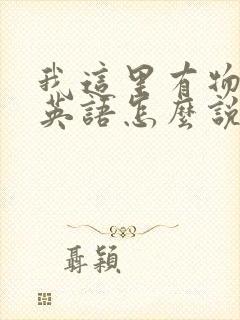 我這里有物
英語怎麼說
聶穎